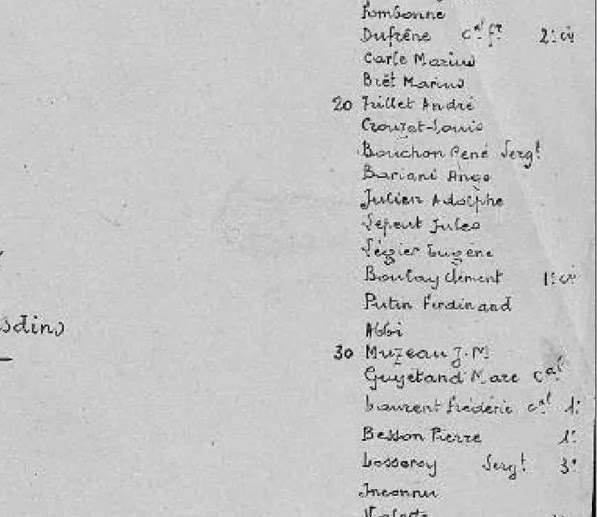 Pombonne
Dufrêne cal fr 2: cie
Carle Marius
Brêt Marius
20 Trillet André
Crouzat-Louis
Bouchon René Sergt
Bariani Ange
Julien Adolphe
Sepeut Jules
Ségier Eugène
Boulay Clément 1: cie
Putin Ferdinand
Abbi
30 Muzeau J.M
Guyétand Marc cal
Laurent Frédéric cal 1:
sdins
Besson Pierre 1:
Losseroy Sergt 3:
Inconnu